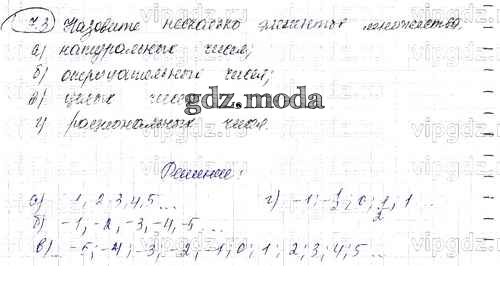 7.3 Назовите несколько элементов множества
а) натуральных чисел;
б) отрицательных чисел;
в) целых чисел
г) рациональных чисел.
gdz.moda
Решение:
а) 1, 2, 3, 4, 5 ... г) -1; -1/2; 0; 1/2; 1 ...
б) -1, -2, -3, -4, -5 ...
в) ... -5; -4; -3; -2; -1; 0; 1; 2; 3; 4; 5 ...